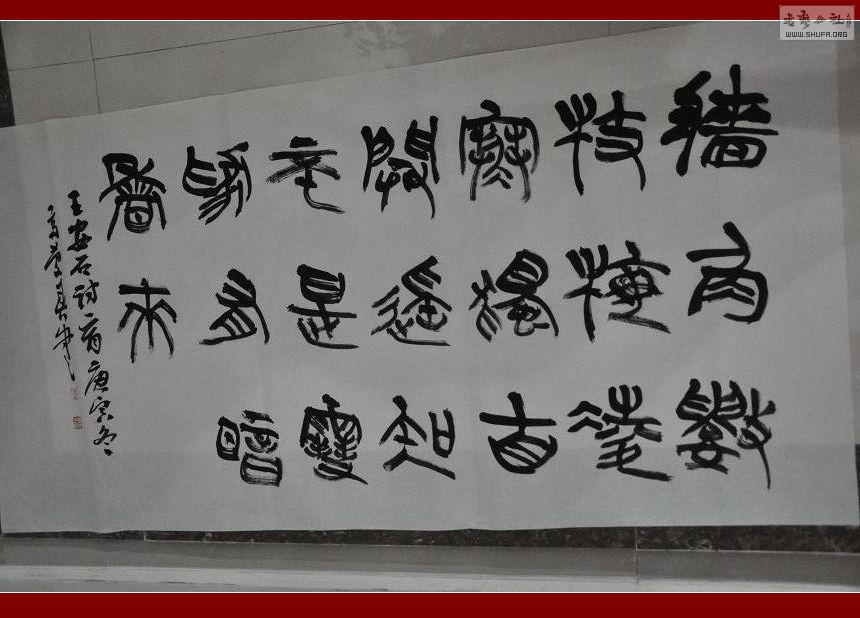 牆角數
枝梅凌
寒獨自
開遥知
不是雪
為有暗
香來
王安石詩一首庚寅冬
书艺公社
WWW.SHUFA.ORG